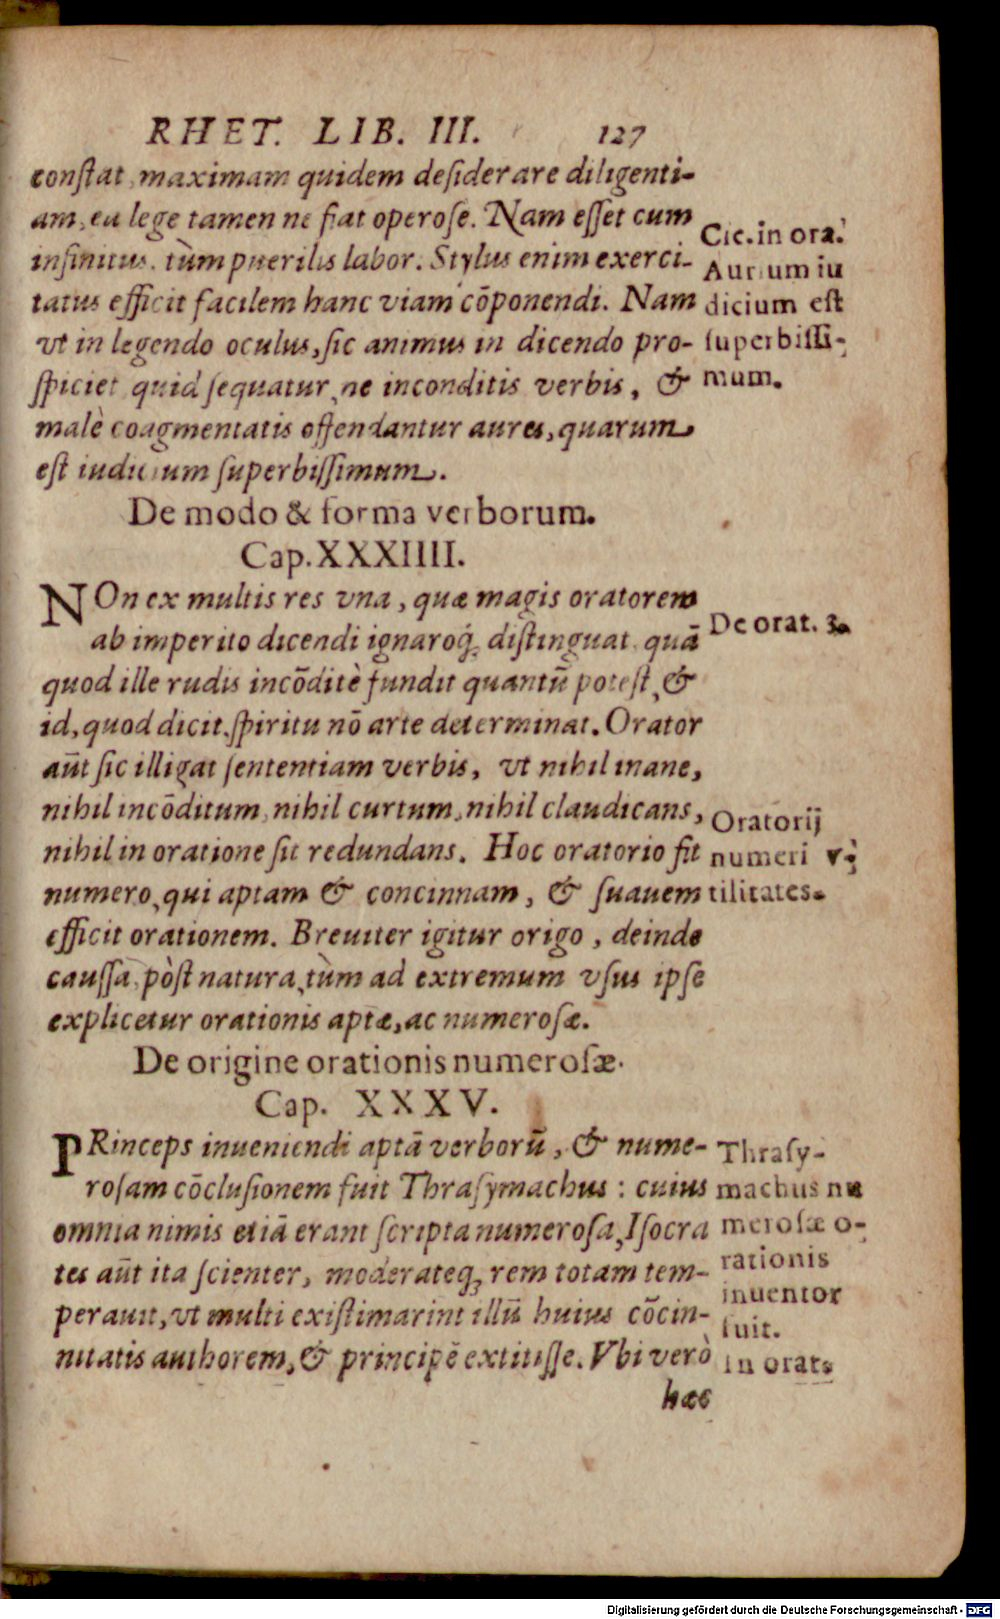 RHET. LIB. III. 127
conſtat, maximam quidem deſiderare diligenti-
am, ea lege tamen ne fiat operoſe. Nam eſſet cum
infinitus, tùm puerilis labor. Stylus enim exerci-
tatus efficit facilem hanc viam cōponendi. Nam
vt in legendo oculus, ſic animus in dicendo pro-
ſpiciet quid ſequatur, ne inconditis verbis, &
malè coagmentatis offendantur aures, quarum
eſt iudicium ſuperbiſſimum.
Cic. in ora.
Aurium iu
dicium eſt
ſuperbiſſi-
mum.
De modo & forma verborum.
Cap. XXXIIII.
NOn ex multis res vna, quæ magis oratorem
ab imperito dicendi ignaroq́; diſtinguat, quā
quod ille rudis incōditè fundit quantū poteſt, &
id, quod dicit, ſpiritu nō arte determinat. Orator
aūt ſic illigat ſententiam verbis, vt nihil inane,
nihil incōditum, nihil curtum, nihil claudicans,
nihil in oratione ſit redundans. Hoc oratorio fit
numero, qui aptam & concinnam, & ſuauem
efficit orationem. Breuiter igitur origo, deinde
cauſſa, pòſt natura, tùm ad extremum vſus ipſe
explicetur orationis aptæ, ac numeroſæ.
De orat. 3.
Oratorij
numeri v-
tilitates.
De origine orationis numeroſæ.
Cap. XXXV.
PRinceps inueniendi aptā verborū, & nume-
roſam cōcluſionem fuit Thraſymachus: cuius
omnia nimis etiā erant ſcripta numeroſa, Iſocra
tes aūt ita ſcienter, moderateq; rem totam tem-
perauit, vt multi exiſtimarint illū huius cōcin-
nitatis authorem, & principē extitiſſe. Vbi verò
hæc
Thraſy-
machus nu
meroſæ o-
rationis
inuentor
fuit.
In orat.
Digitalisierung gefördert durch die Deutsche Forschungsgemeinschaft - DFG